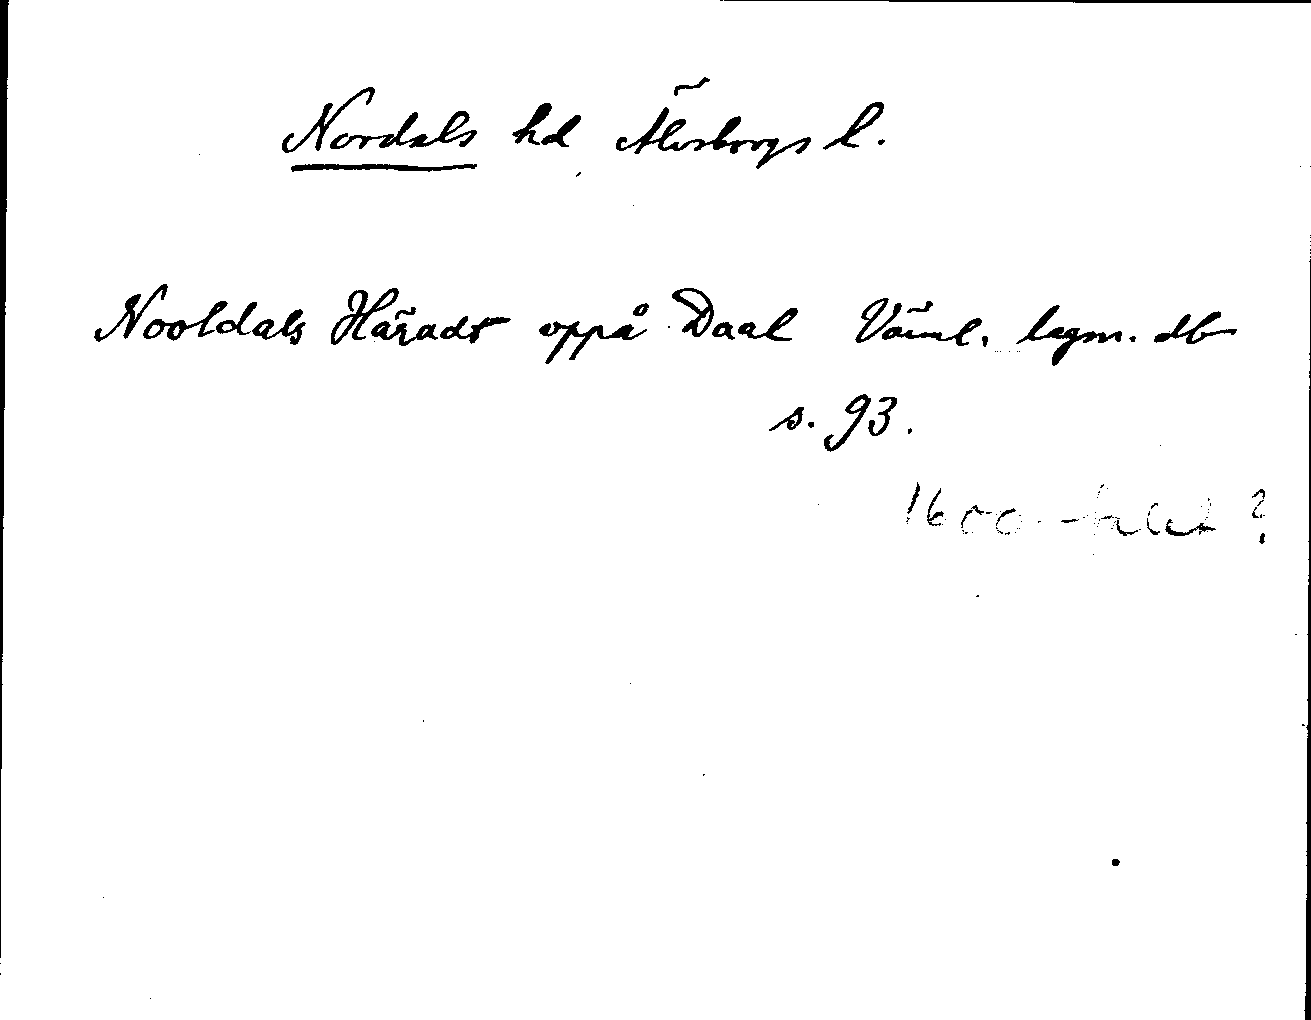 Nordals hd Älvsborgs l.
Nooldals Häradt oppå Daal Värml. lagm. db
s. 93.
1600-talet?